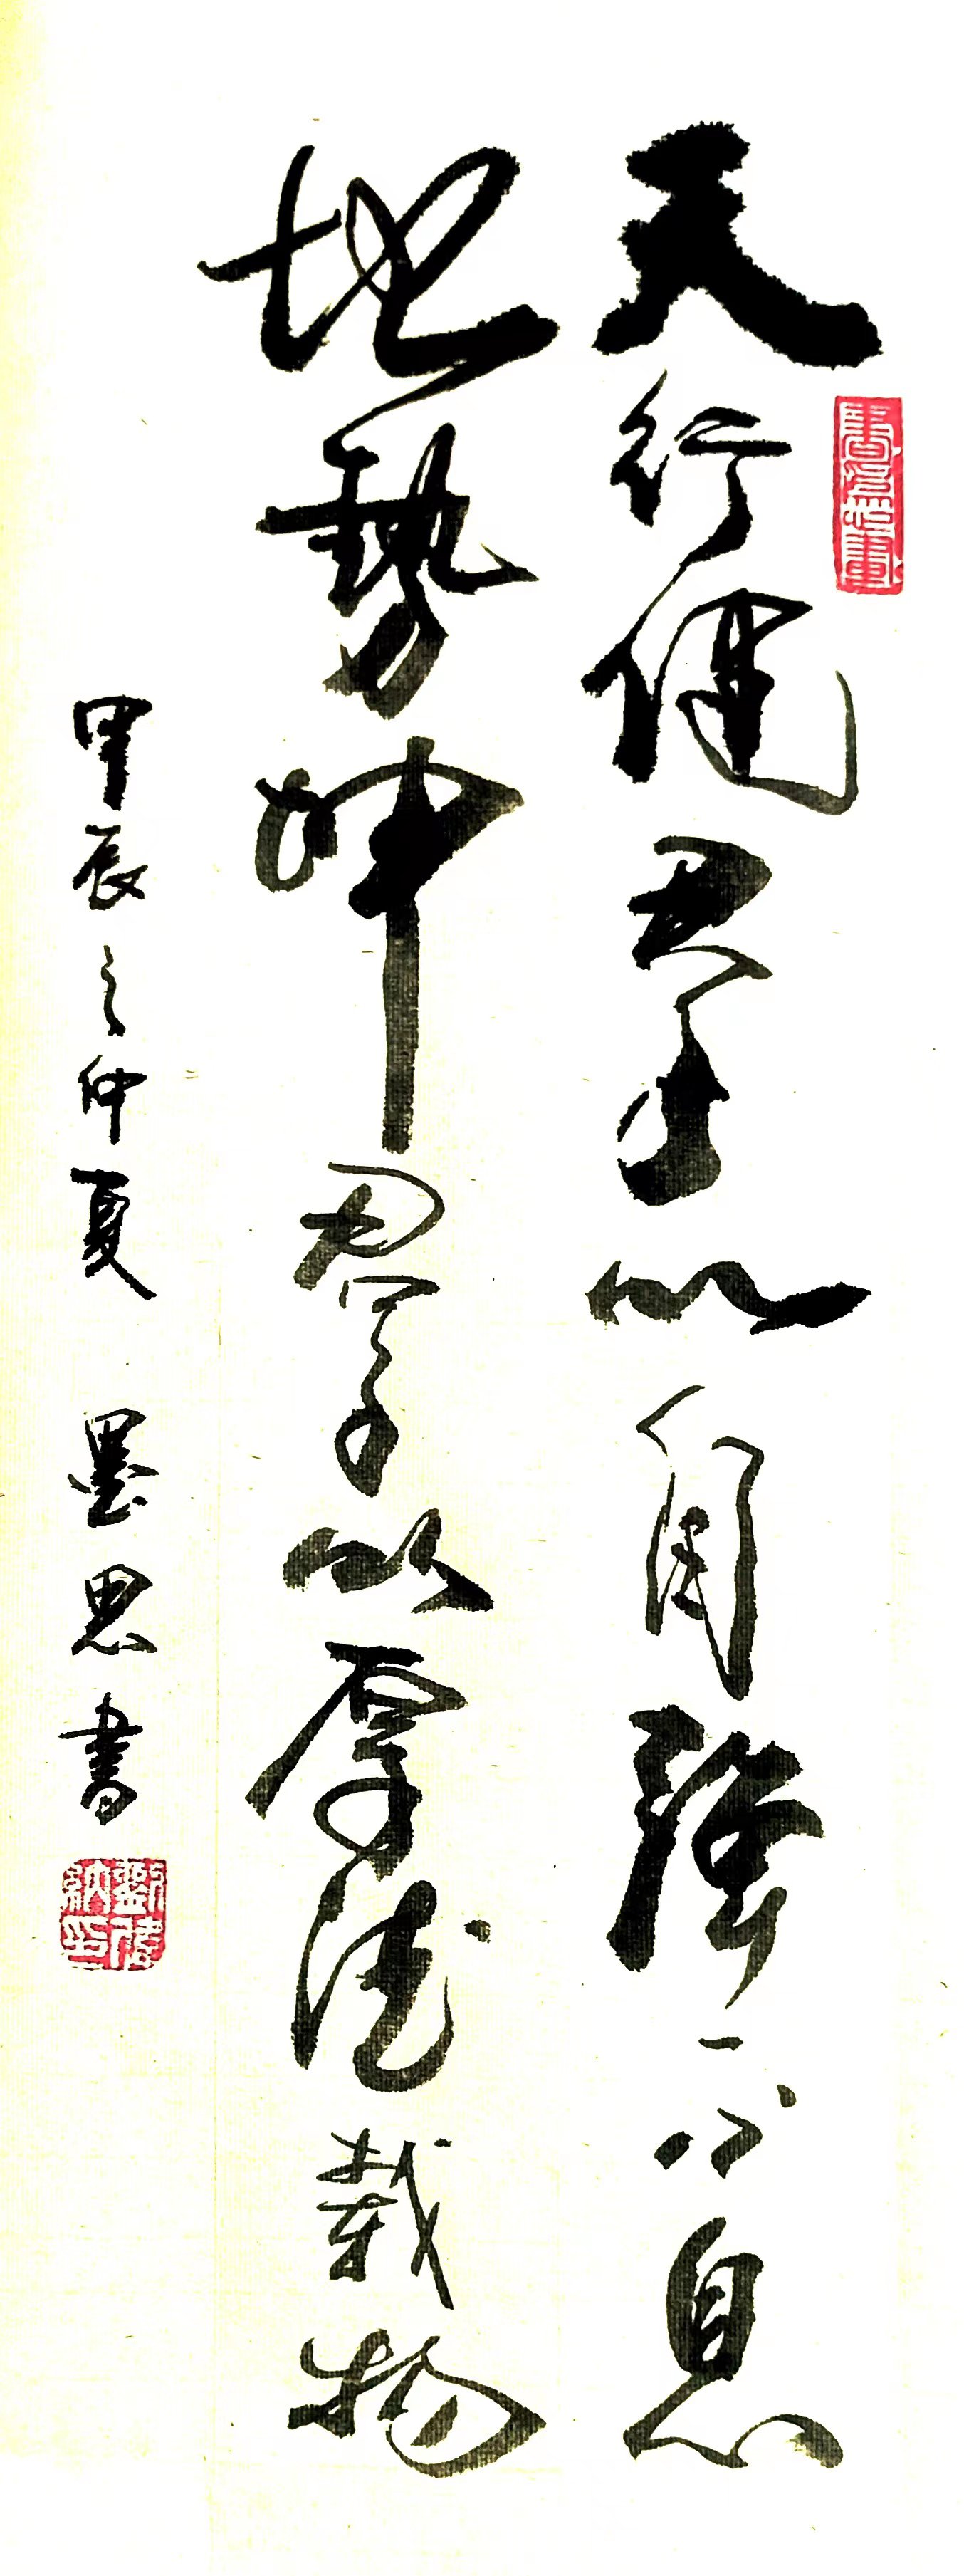 天行健君子以自強不息
地勢坤君子以厚德載物
甲辰之仲夏 墨思書